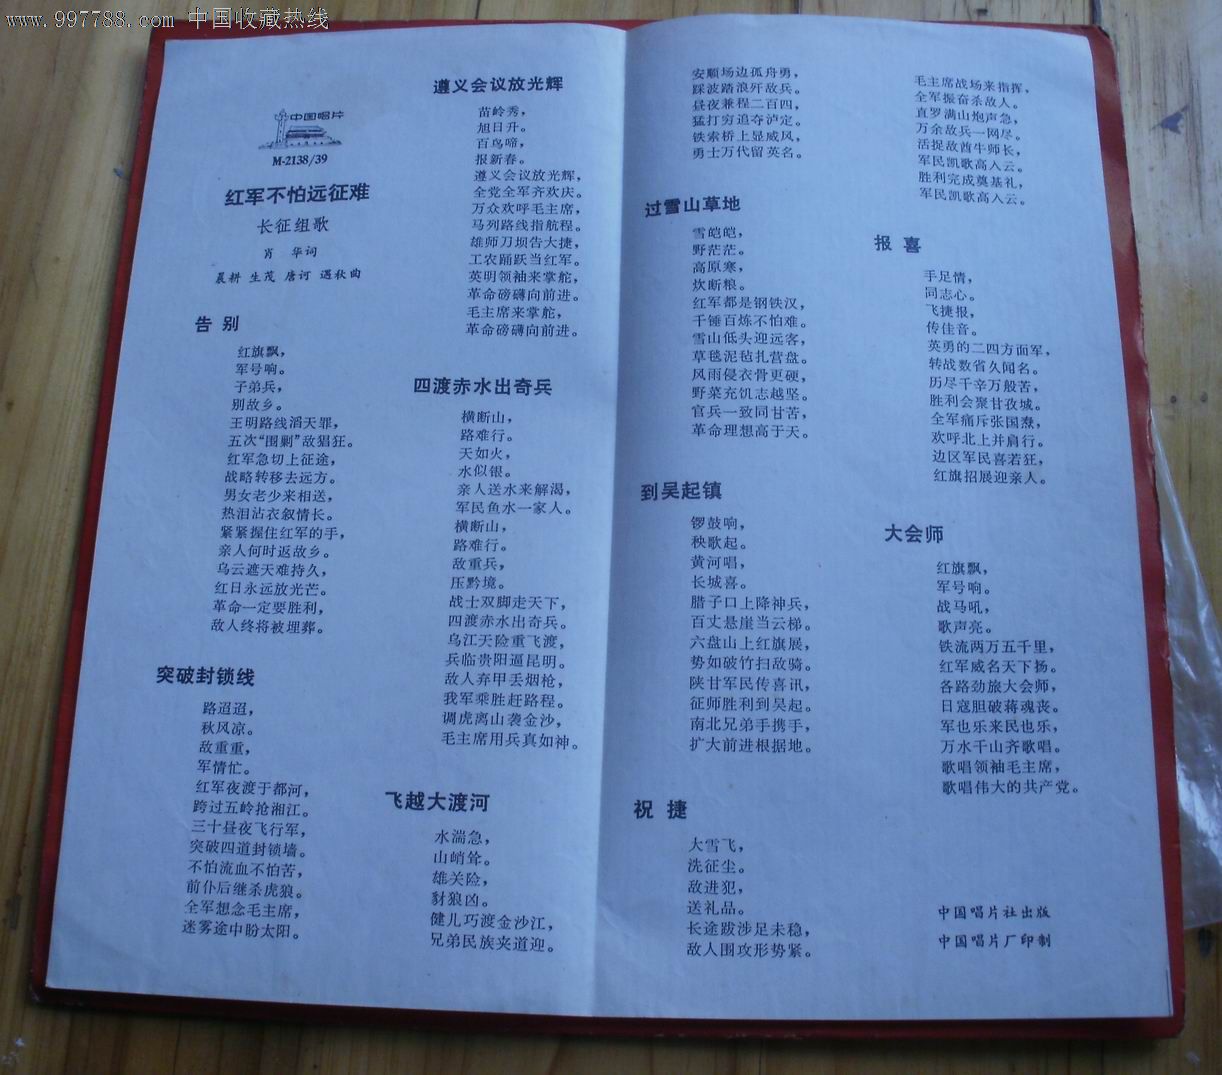 www.997788.com 中国收藏热线
中国唱片
M-2138/39
红军不怕远征难
长征组歌
肖 华词
晨耕 生茂 唐诃 遇秋曲
告别
红旗飘，
军号响。
子弟兵，
别故乡。
王明路线滔天罪，
五次“围剿”敌猖狂。
红军急切上征途，
战略转移去远方。
男女老少来相送，
热泪沾衣叙情长。
紧紧握住红军的手，
亲人何时返故乡。
乌云遮天难持久，
红日永远放光芒。
革命一定要胜利，
敌人终将被埋葬。
突破封锁线
路迢迢，
秋风凉。
敌重重，
军情忙。
红军夜渡于都河，
跨过五岭抢湘江。
三十昼夜飞行军，
突破四道封锁墙。
不怕流血不怕苦，
前仆后继杀虎狼。
全军想念毛主席，
迷雾途中盼太阳。
遵义会议放光辉
苗岭秀，
旭日升。
百鸟啼，
报新春。
遵义会议放光辉，
全党全军齐欢庆。
万众欢呼毛主席，
马列路线指航程。
雄师刀坝告大捷，
工农踊跃当红军。
英明领袖来掌舵，
革命磅礴向前进。
毛主席来掌舵，
革命磅礴向前进。
四渡赤水出奇兵
横断山，
路难行。
天如火，
水似银。
亲人送水来解渴，
军民鱼水一家人。
横断山，
路难行。
敌重兵，
压黔境。
战士双脚走天下，
四渡赤水出奇兵。
乌江天险重飞渡，
兵临贵阳逼昆明。
敌人弃甲丢烟枪，
我军乘胜赶路程。
调虎离山袭金沙，
毛主席用兵真如神。
飞越大渡河
水湍急，
山峭耸。
雄关险，
豺狼凶。
健儿巧渡金沙江，
兄弟民族夹道迎。
安顺场边孤舟勇，
踩波踏浪歼敌兵。
昼夜兼程二百四，
猛打穷追夺泸定。
铁索桥上显威风，
勇士万代留英名。
过雪山草地
雪皑皑，
野茫茫。
高原寒，
炊断粮。
红军都是钢铁汉，
千锤百炼不怕难。
雪山低头迎远客，
草毯泥毡扎营盘。
风雨侵衣骨更硬，
野菜充饥志越坚。
官兵一致同甘苦，
革命理想高于天。
到吴起镇
锣鼓响，
秧歌起。
黄河唱，
长城喜。
腊子口上降神兵，
百丈悬崖当云梯。
六盘山上红旗展，
势如破竹扫敌骑。
陕甘军民传喜讯，
征师胜利到吴起。
南北兄弟手携手，
扩大前进根据地。
祝捷
大雪飞，
洗征尘。
敌进犯，
送礼品。
长途跋涉足未稳，
敌人围攻形势紧。
毛主席战场来指挥，
全军振奋杀敌人。
直罗满山炮声急，
万余敌兵一网尽。
活捉敌酋牛师长，
军民凯歌高入云。
胜利完成奠基礼，
军民凯歌高入云。
报喜
手足情，
同志心。
飞捷报，
传佳音。
英勇的二四方面军，
转战数省久闻名。
历尽千辛万般苦，
胜利会聚甘孜城。
全军痛斥张国焘，
欢呼北上并肩行。
边区军民喜若狂，
红旗招展迎亲人。
大会师
红旗飘，
军号响。
战马吼，
歌声亮。
铁流两万五千里，
红军威名天下扬。
各路劲旅大会师，
日寇胆破蒋魂丧。
军也乐来民也乐，
万水千山齐歌唱。
歌唱领袖毛主席，
歌唱伟大的共产党。
中国唱片社出版
中国唱片厂印制